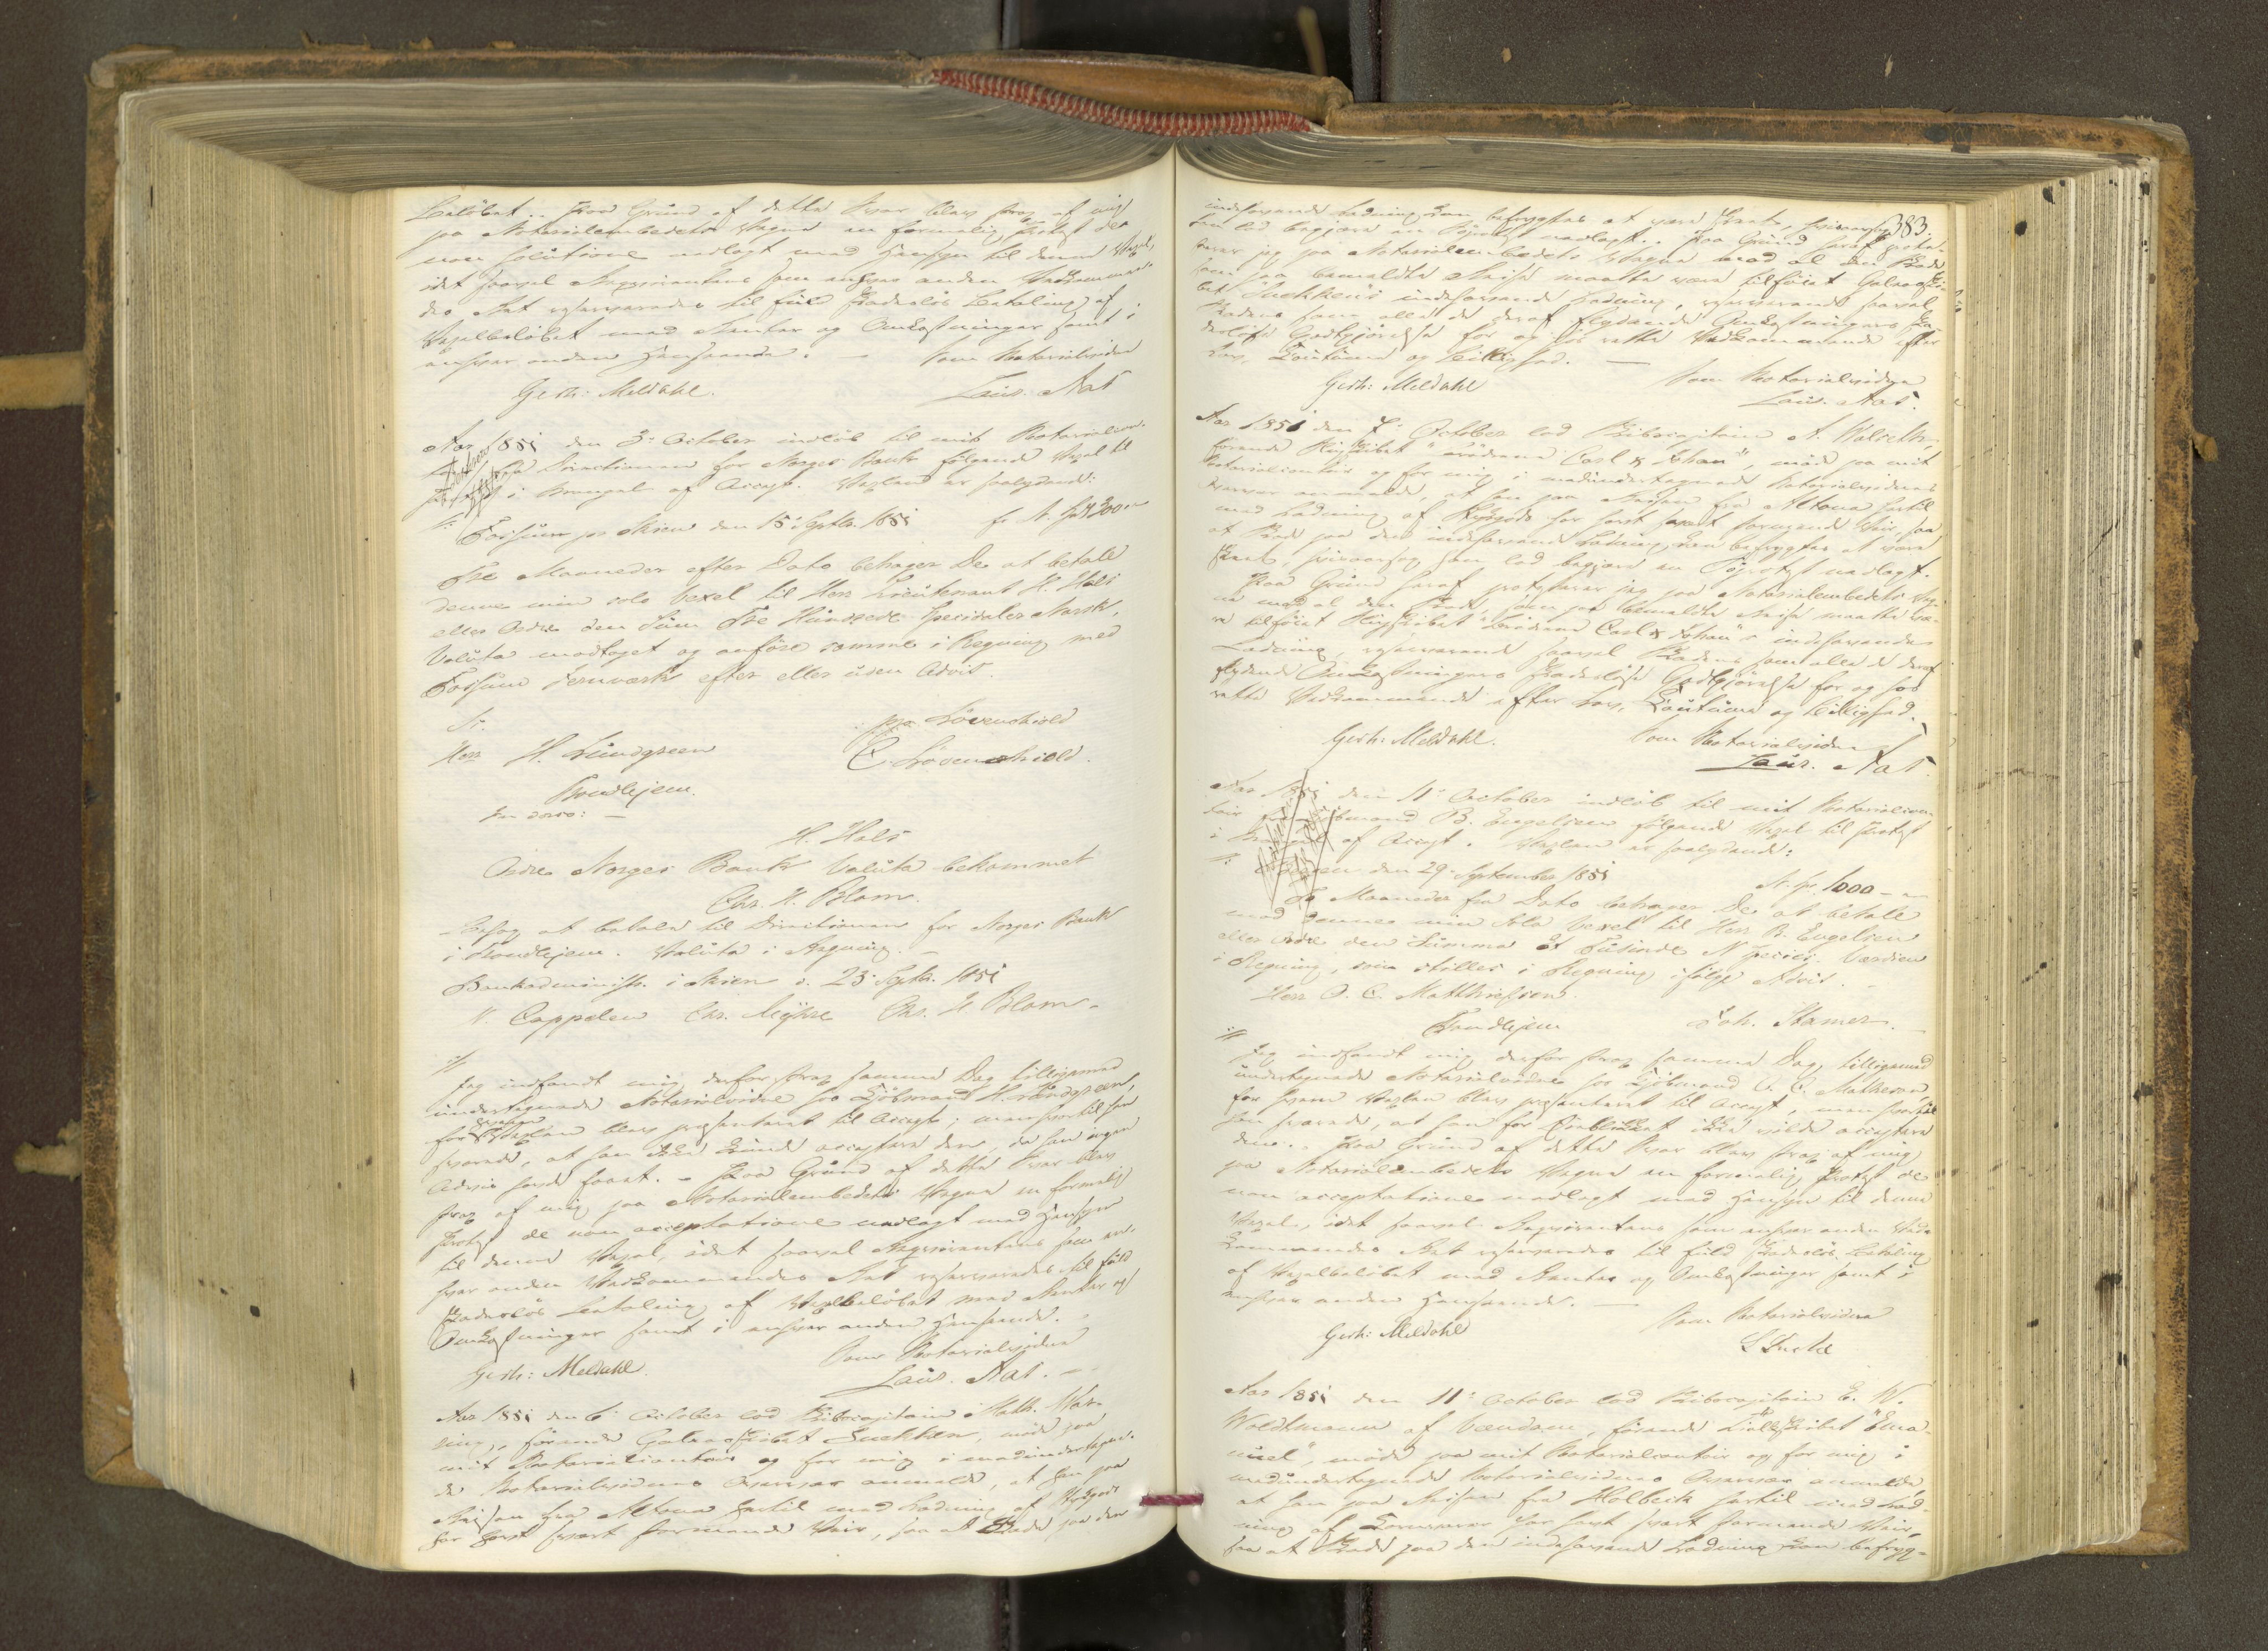 Beløbet. Paa Grund af dette Svar blev strax af mig
paa Notarialembedets Vegne en formelig Protest de
non solutione nedlagt med Hensyn til denne Vexel,
idet saavel Reqvirentens som enhver anden Vedkommen-
des Ret reserveredes til fuld skadesløs Betaling af
Vexelbeløbet med Renter og Omkostninger samt i
enhver anden Henseende. Som Notarialvidne
Gerh: Meldahl. Laur. Aas
Aar 1851 den 3die October indløb til mit Notarialcon-
fra Directionen for Norges Bank følgende Vexel til
Protest i Mangel af Accept. Vexlen er saalydende:
Fossum pr Skien den 15 Septbr. 1851 for N. Sp 300
Tre Maaneder efter Dato behager De at betale
denne min solo Vexel til Herr Lieutenant H. Hals
eller Ordre den Sum Tre Hundrede Speciedaler Norsk,
Valuta modtaget og anføre samme i Regning med
Fossum Jernværk efter eller uden Advis.
St.
Herr H. Lundgreen
pro Løvenskiold
E. Løvenskiold.
Trondhjem.
In dorso:
H. Hals
Ordre Norges Bank Valuta bekommet
Chr. H. Blom.
Behag at betale til Directionen for Norges Bank
i Trondhjem. Valuta i Regning.
Bankadministr. i Skien d. 23 Septbr. 1851
N. Cappelen Chr. Myhre Chr. H. Blom.
Jeg indfandt mig derfor strax samme Dag tilligemed
undertegnede Notarialvidne hos Kjøbmand H. Lundgreen,
for hvem Vexlen blev presenteret til Accept; men hvortil han
svarede, at han ikke kunde acceptere den, da han ingen
Advis havde faaet. Paa Grund af dette Svar blev
strax af mig paa Notarialembedets Vegne en formelig
Protest de non acceptatione nedlagt med Hensyn
til denne Vexel, idet saavel Reqvirentens som en-
hver anden Vedkommendes Ret reserveredes til fuld
skadesløs Betaling af Vexelbeløbet med Renter og
Omkostninger samt i enhver anden Henseende.
Som Notarialvidne
Gerh: Meldahl. Laur. Aas.
Aar 1851 den 6te October lod Skibscapitain Math. War-
ing, førende Galeaseskibet Suekken, møde paa
mit Notarialcontoir og for mig i medundertegne-
de Notarialvidnes Overvær anmelde, at han paa
Reisen fra Altona hertil med Ladning af Stykgods
har havt svært stormende Veir, saa at Skade paa den
383.
indehavende Ladning kan befrygtes at være skeet, hvorfor
han lod begjære en Søprotest nedlagt. Paa Grund heraf prote-
sterer jeg paa Notarialembedets Vegne mod al den Skade
som paa bemeldte Reise maatte være tilføiet Galeaseski-
bet Suekken's indehavende Ladning, reserverende saavel
Skadens som alle de deraf flydende Omkostningers ska-
desløse Godtgjørelse for og hos rette Vedkommende efter
Lov, Coutume og Billighed.
Som Notarialvidne
Gerh: Meldahl Laur. Aas.
Aar 1851 den 7de October lod Skibscapitain A. Walseth,
førende Skibet "Brødrene Carl & Johan", møde paa mit
Notarialcontoir og for mig i medundertegnede Notarialvidnes
Overvær anmelde, at han paa Reisen fra Altona hertil
med Ladning af Stykgods har havt svært stormende Veir, saa
at Skade paa den indehavende Ladning kan befrygtes at være
skeet, hvorfor han lod begjære en Søprotest nedlagt.
Paa Grund heraf protesterer jeg paa Notarialembedets Veg-
ne mod al den Skade, som paa bemeldte Reise maatte væ-
re tilføiet Skibet "Brødrene Carl & Johan"s indehavende
Ladning, reserverende saavel Skadens som alle de deraf
flydende Omkostningers skadesløse Godtgjørelse for og hos
rette Vedkommende efter Lov, Coutume og Billighed.
Gerh: Meldahl. Som Notarialvidne
Laur. Aas.
Aar 1851 den 11te October indløb til mit Notarialcon-
toir fra Kjøbmand B. Engelsen følgende Vexel til Protest
i Mangel af Accept. Vexlen er saalydende:
den 29 September 1851 N. Sp. 1000
Maaneder fra Dato behager De at betale
mod denne min Sola Vexel til Herr B. Engelsen
eller Ordre den Summa Et Tusinde N Species. Værdien
i Regning, som stilles i Regning ifølge Advis.
Herr O. C. Matthiessen.
Trondhjem Joh. Hamer.
Jeg indfandt mig derfor strax samme Dag tilligemed
undertegnede Notarialvidne hos Kjøbmand O. C. Mathesen,
for hvem Vexlen blev presenteret til Accept, men hvortil
han svarede, at han for Øieblikket ikke vilde acceptere
den. Paa Grund af dette Svar blev strax af mig
paa Notarialembedets Vegne en formelig Protest de
non acceptatione nedlagt med Hensyn til denne
Vexel, idet saavel Reqvirentens som enhver anden Ved-
kommendes Ret reserveredes til fuld skadesløs Betaling
af Vexelbeløbet med Renter og Omkostninger samt i
enhver anden Henseende.
Som Notarialvidne
Gerh: Meldahl
Aar 1851 den 11te October lod Skibscapitain E. W.
Woldtmann af førende Skibet "Ema-
nuel", møde paa mit Notarialcontoir og for mig i
medundertegnede Notarialvidnes Overvær anmelde,
at han paa Reisen fra Holbeck hertil med Lad-
ning af Kornvarer har havt svært stormende Veir,
saa at Skade paa den indehavende Ladning kan befryg-